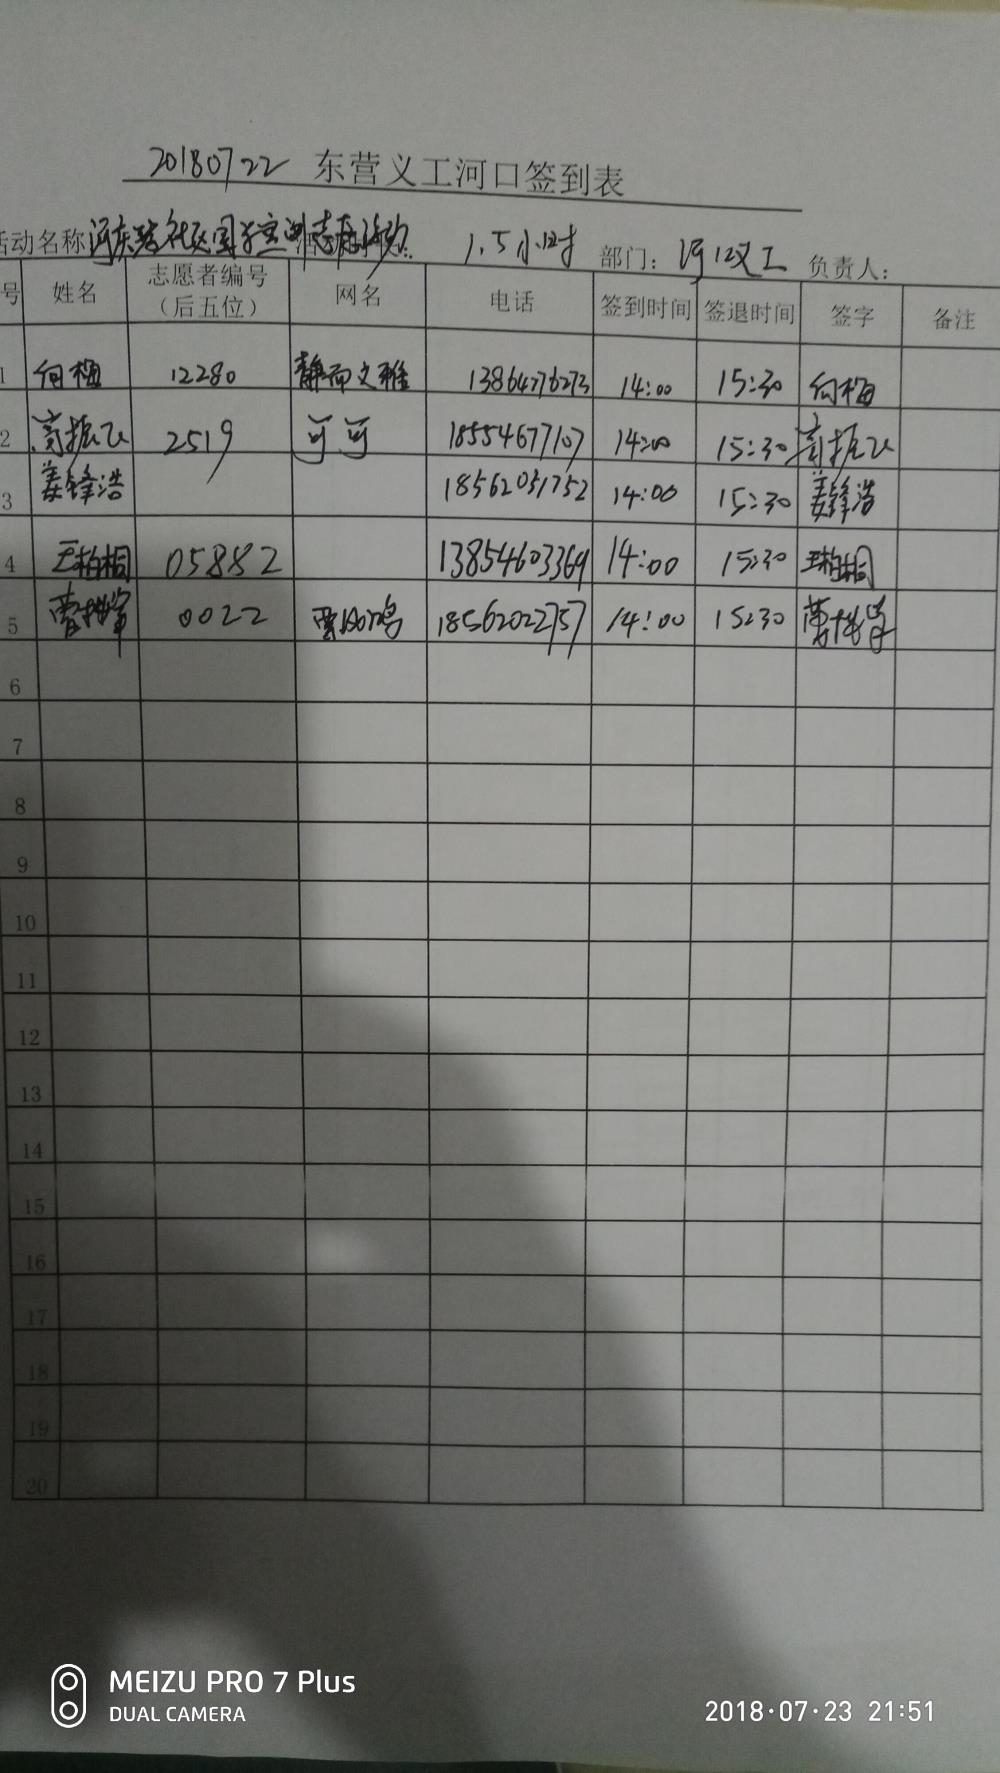 20180722 东营义工河口签到表
活动名称 1.5小时 部门：河口义工 负责人：
号 姓名 志愿者编号（后五位） 网名 电话 签到时间 签退时间 签字 备注
1 向梅 12280 静而文雅 13864776273 14:00 15:30 向梅
2 高振飞 2519 可可 18554677107 14:00 15:30 高振飞
3 姜锋浩 18562031752 14:00 15:30 姜锋浩
4 王柏桐 05882 13854603369 14:00 15:30 王柏桐
5 0022 18562022757 14:00 15:30
6
7
8
9
10
11
12
13
14
15
16
17
18
19
20
MEIZU PRO 7 Plus
DUAL CAMERA
2018·07·23 21:51